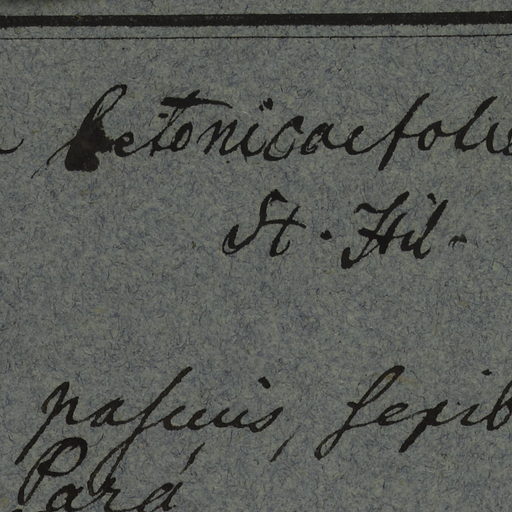 betonicaefolia
St. Hil.
pascuis, sepib
Pará